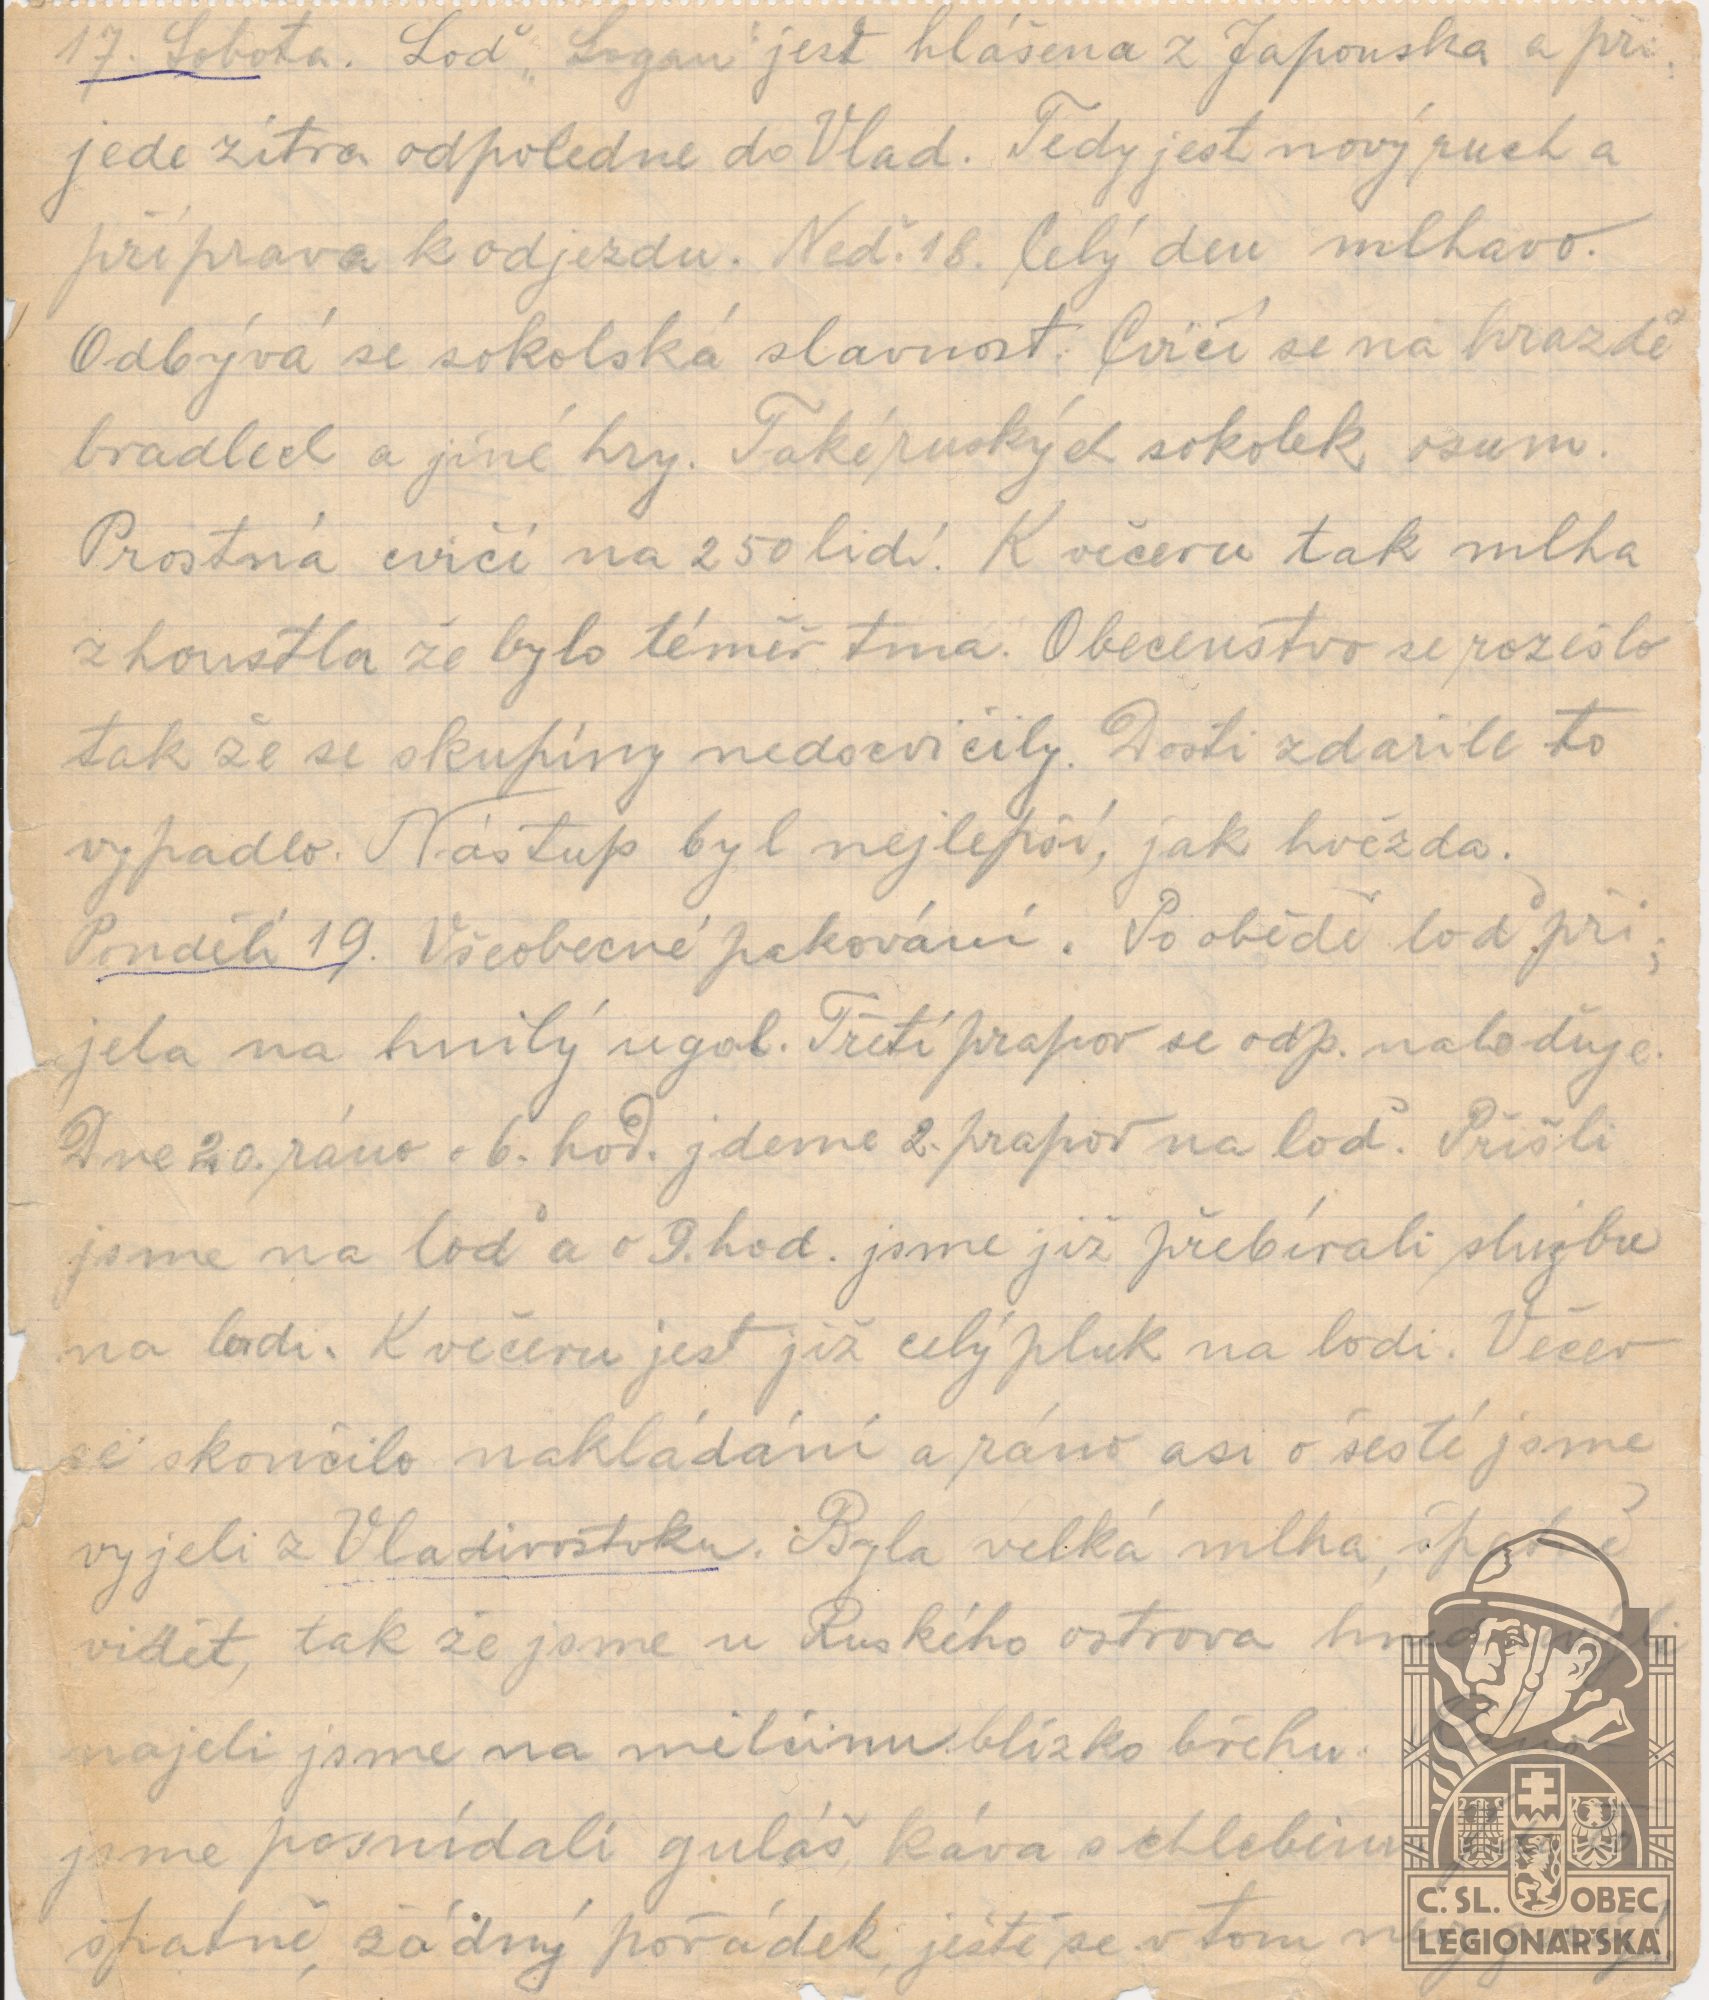 17. Sobota. Loď „Logan" jest hlášena z Japonska a při-
jede zítra odpoledne do Vlad. Tedy jest nový ruch a
příprava k odjezdu. Neď. 18. Celý den mlhavo.
Odbývá se sokolská slavnost. Cvičí se na hrazdě
bradlech a jiné hry. Také ruských sokolek osum.
Prostná cvičí na 250 lidí. K večeru tak mlha
zhoustla že bylo téměř tma. Obecenstvo se rozešlo
tak že se skupiny nedocvičily. Dosti zdařile to
vypadlo. Nástup byl nejlepší, jak hvězda.
Pondělí 19. Všeobecné pakování. Po obědě loď při-
jela na hnilý ugol. Třetí prapor se odp. naloďuje.
Dne 20. ráno o 6. hod. jdeme 2. prapor na loď. Přišli
jsme na loď a o 9. hod. jsme již přebírali službu
na lodi. K večeru jest již celý pluk na lodi. Večer
se skončilo nakládání a ráno asi o šesté jsme
vyjeli z Vladivostoku. Byla velká mlha, špatně
vidět, tak že jsme u Ruského ostrova
najeli jsme na mělčinu blízko břehu. Ráno
jsme posnídali guláš, káva s chlebem
špatně, žádný pořádek, ještě se v tom
Č. SL. OBEC
LEGIONÁŘSKÁ